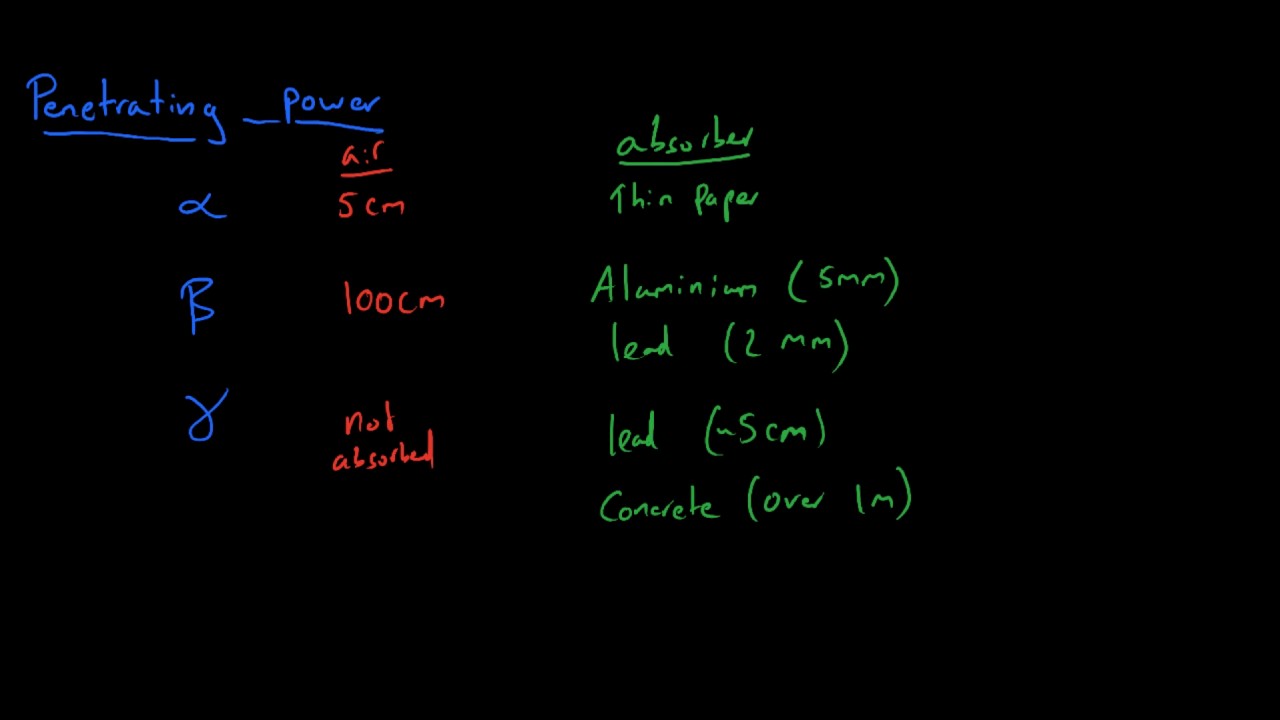 Penetrating power
air
absorber
α 5cm Thin Paper
β 100cm Aluminium (5mm)
lead (2 mm)
γ not absorbed lead (~5cm)
Concrete (over 1m)